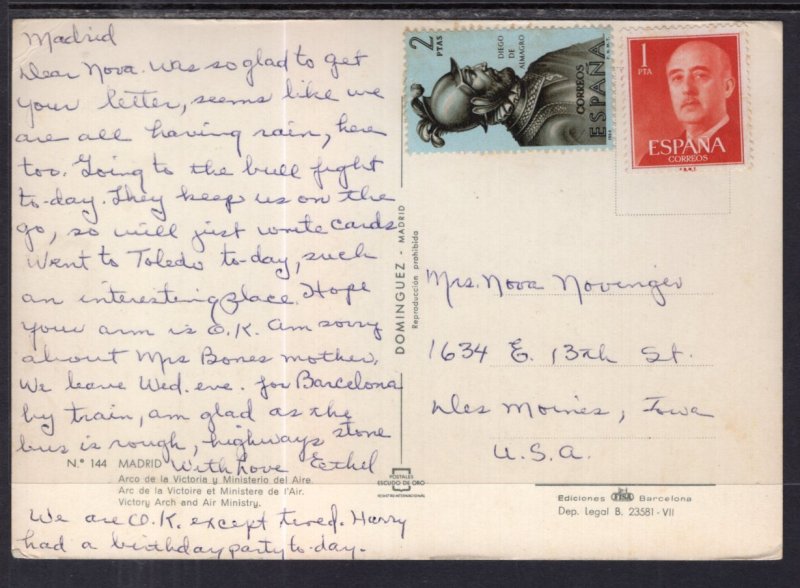 Madrid
Dear Nova. Was so glad to get
your letter, seems like we
are all having rain, here
too. Going to the bull fight
to-day. They keep us on the
go, so will just write cards
Went to Toledo to-day, such
an interesting place. Hope
your arm is O.K. Am sorry
about Mrs Bones mother.
We leave Wed. eve. for Barcelona
by train, am glad as the
bus is rough, highways stone
With love Ethel
N.° 144 MADRID
Arco de la Victoria y Ministerio del Aire.
Arc de la Victoire et Ministere de l'Air.
Victory Arch and Air Ministry.
We are O.K. except tired. Harry
had a birthday party to-day.
DOMINGUEZ - MADRID
Reproducción prohibida
POSTALES
ESCUDO DE ORO
2 PTAS
DIEGO
DE
ALMAGRO
CORREOS
ESPAÑA
1
PTA
ESPAÑA
CORREOS
Mrs. Nova Novinger
1634 E. 13th St.
Des Moines, Iowa
U.S.A.
Ediciones FISA Barcelona
Dep. Legal B. 23581 - VII